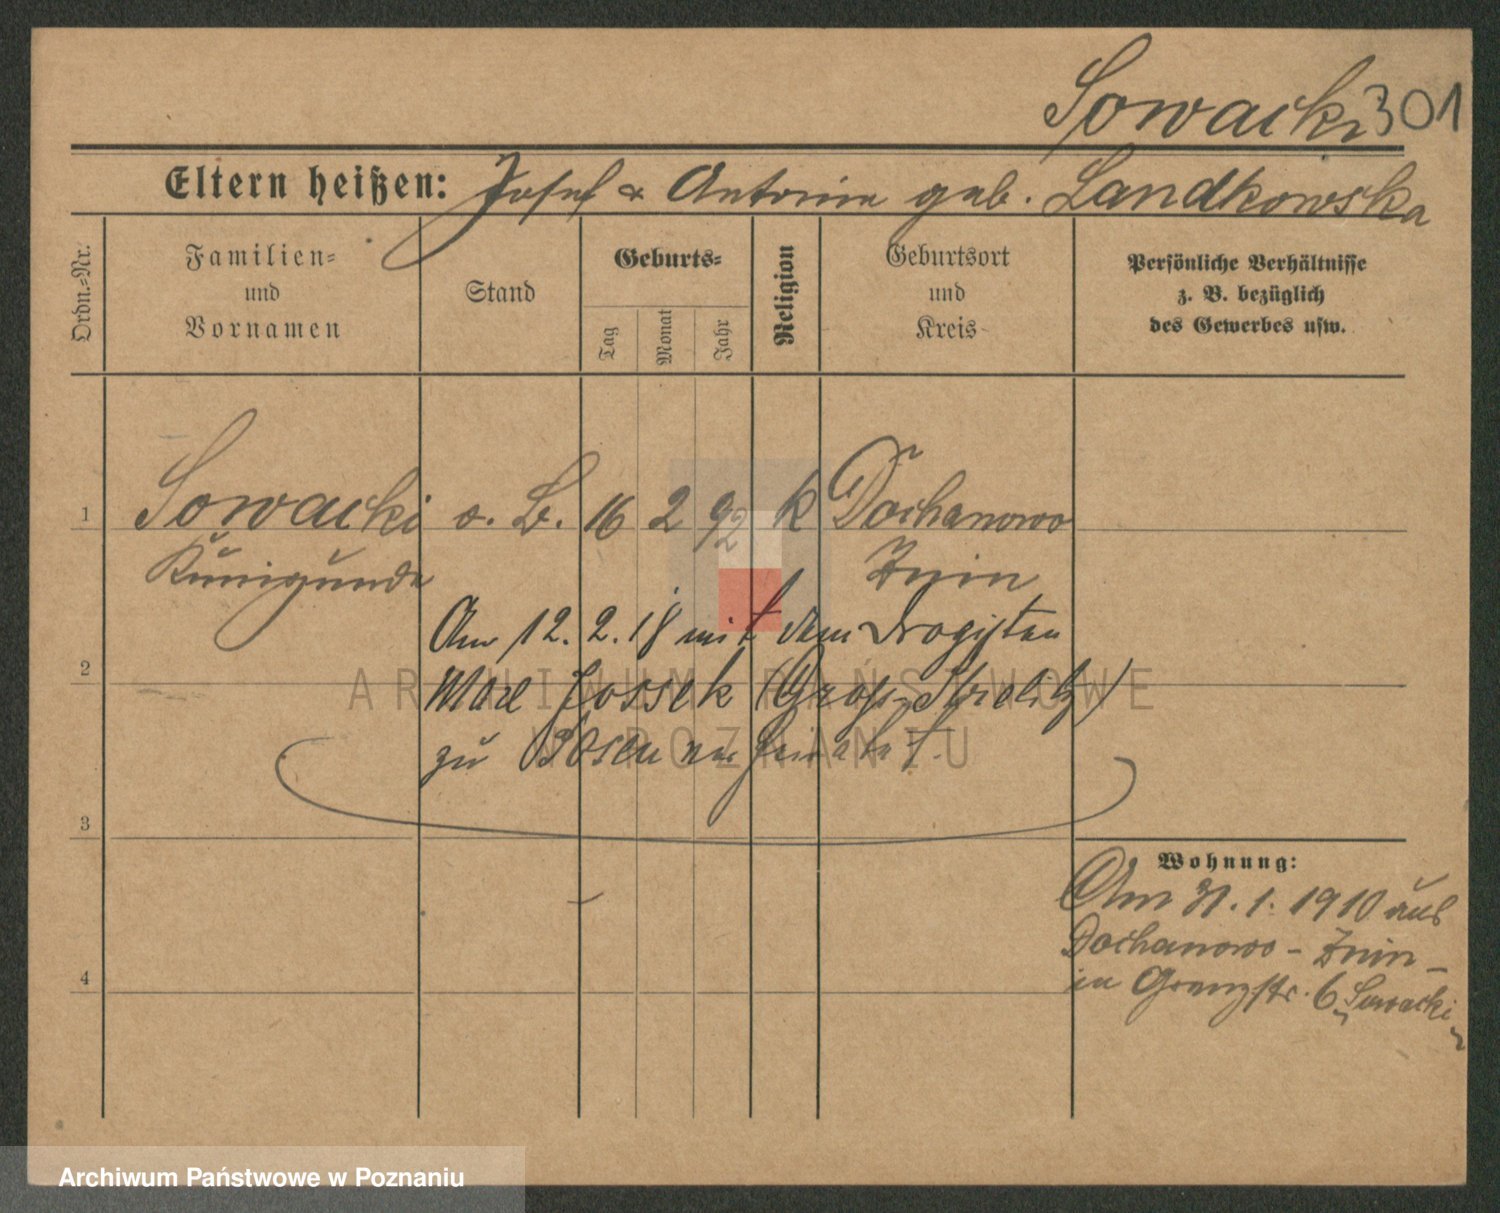 Sowacki 301
Eltern heißen: Josef & Antonine geb. Landkowska
Ordn.-Nr.
Familien-
und
Vornamen
Stand
Geburts-
Tag
Monat
Jahr
Religion
Geburtsort
und
Kreis
Persönliche Verhältnisse
z. B. bezüglich
des Gewerbes usw.
1 Sowacki o. B. 16 2 92 k Dochanowo
Kunigunde Znin
Am 12. 2. 18 mit dem Drogisten
2
Max Jossek (Groß-Strelitz)
zu Posen verheiratet.
3
Wohnung:
Am 31. 1. 1910 aus
Dochanowo - Znin -
4
in Grenzstr. 6 „Sowacki"
ARCHIWUM PAŃSTWOWE
W POZNANIU
Archiwum Państwowe w Poznaniu